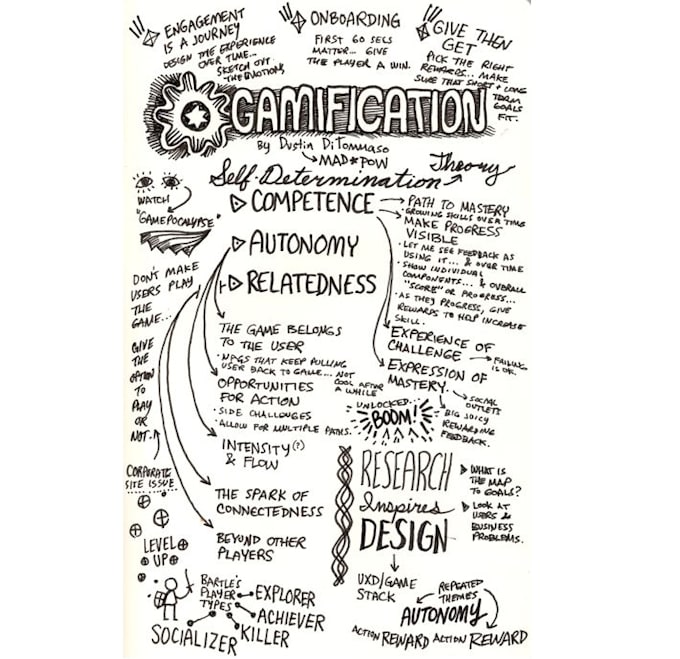 ENGAGEMENT
IS A JOURNEY
DESIGN THE EXPERIENCE
OVER TIME...
SKETCH OUT
THE EMOTIONS
ONBOARDING
FIRST 60 SECS
MATTER... GIVE
THE PLAYER A WIN.
GIVE THEN
GET
PICK THE RIGHT
REWARDS... MAKE
SURE THAT SHORT + LONG
TERM
GOALS
FIT.
GAMIFICATION
by Dustin DiTommaso
MAD*POW
Self-Determination Theory
WATCH
"GAMEPOCALYPSE"
COMPETENCE
AUTONOMY
RELATEDNESS
PATH TO MASTERY
• GROWING SKILLS OVER TIME
MAKE PROGRESS
VISIBLE
• LET ME SEE FEEDBACK AS
USING IT... & OVER TIME
• SHOW INDIVIDUAL
COMPONENTS... & OVERALL
"SCORE" OR PROGRESS...
• AS THEY PROGRESS, GIVE
REWARDS TO HELP INCREASE
SKILL.
EXPERIENCE OF
CHALLENGE
FAILING
IS OK.
EXPRESSION OF
MASTERY.
SOCIAL
OUTLETS
BIG JUICY
REWARDING
FEEDBACK.
DON'T MAKE
USERS PLAY
THE
GAME...
GIVE
THE
OPTION
TO
PLAY
OR
NOT.
CORPORATE
SITE ISSUE
THE GAME BELONGS
TO THE USER
• NAGS THAT KEEP PULLING
USER BACK TO GAME... NOT
COOL AFTER
A WHILE
OPPORTUNITIES
FOR ACTION
• SIDE CHALLENGES
• ALLOW FOR MULTIPLE PATHS.
INTENSITY(?)
& FLOW
THE SPARK OF
CONNECTEDNESS
BEYOND OTHER
PLAYERS
UNLOCKED..
BOOM!
RESEARCH
Inspires
DESIGN
WHAT IS
THE MAP
TO GOALS?
LOOK AT
USERS &
BUSINESS
PROBLEMS.
UXD/GAME
STACK
REPEATED
THEMES
AUTONOMY
ACTION REWARD ACTION REWARD
LEVEL
UP
BARTLE'S
PLAYER
TYPES
EXPLORER
ACHIEVER
KILLER
SOCIALIZER